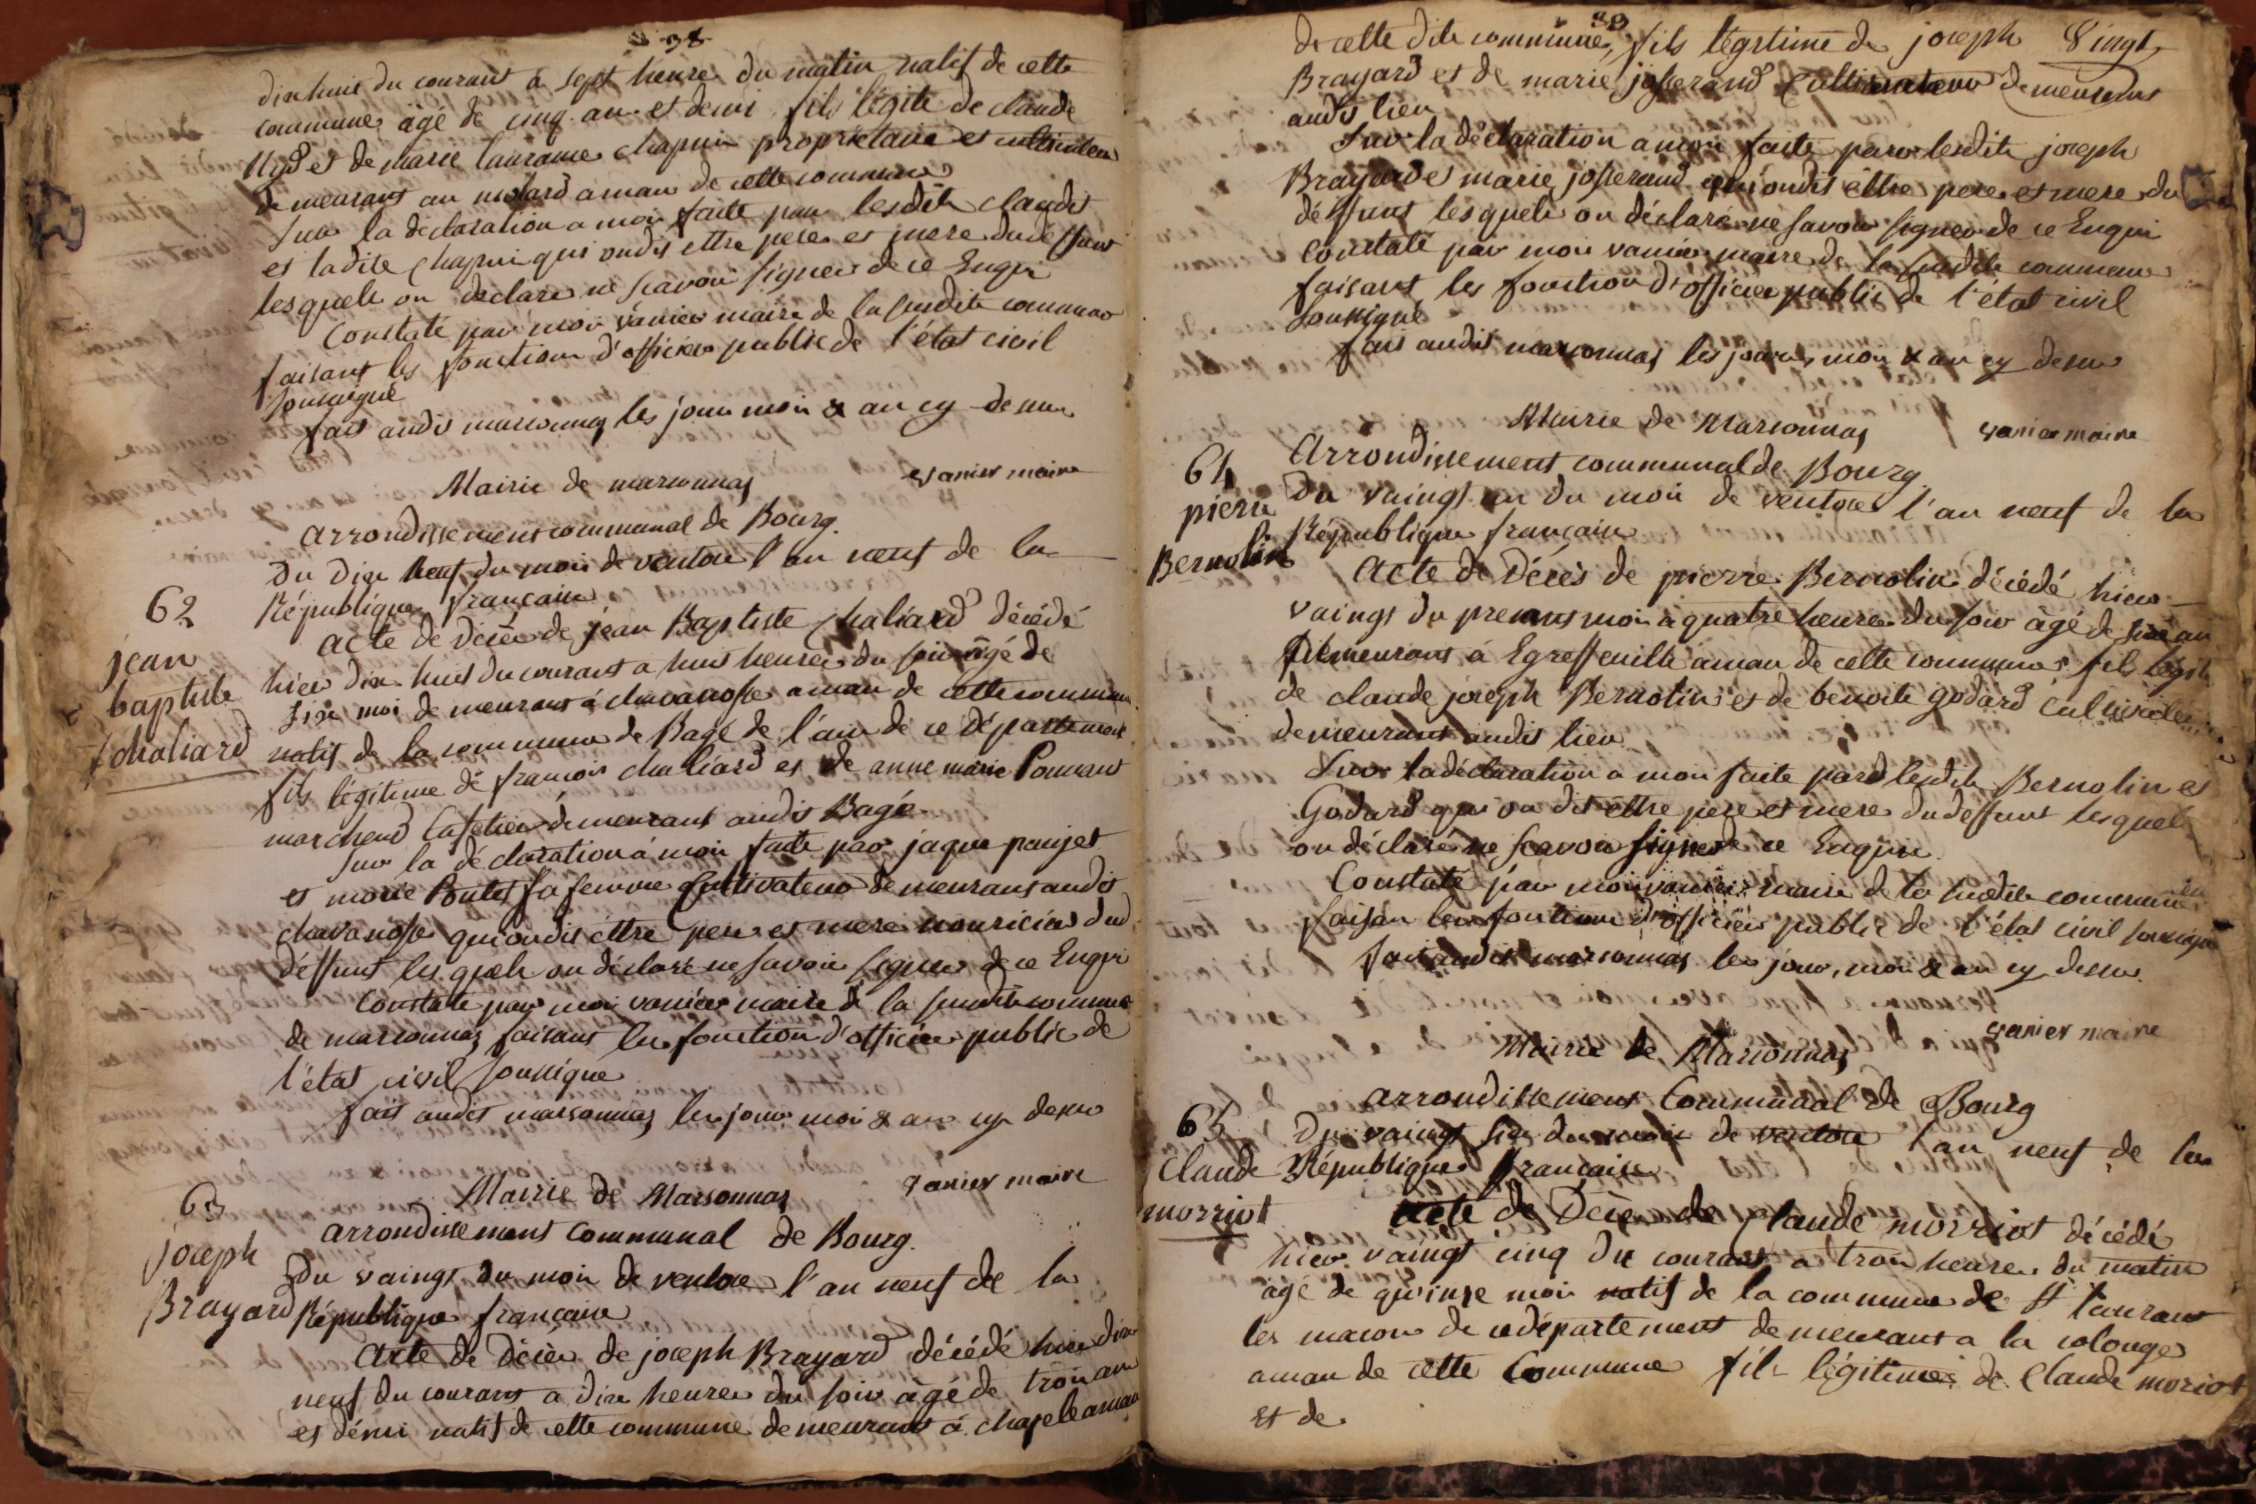 38
dix huit du courant a sept heure du matin natif de cette
commune agé de cinq an et demi fils légite de claude
et de marie laurance chapuis proprietaire et cultivateur
demeurant au molard aman de cette commune
sur la déclaration a moi faite par lesdits claude
et ladite chapuis qui ondit ettre pere et mere du deffunt
lesquels on declare ne scavoir signer de ce Enqui
Constaté par moi vanier maire de la susdite commune
faisant les fonction d'officier public de l'état civil
soussigné
fait audit marsonnas les jour moi & an cy dessu
vanier maire
Mairie de marsonnas
arrondissement communal de Bourg.
62
jean
baptiste
chaliard
Du Dix neuf du moi de ventose l'an neuf de la
République française
acte de décès de jean Baptiste chaliard décédé
hier dix huit du courant a huit heure du soir âgé de
six moi demeurant á chavanosse aman de cette commune
natif de la commune de Bagé de l'ain de ce département
fils légitime de francois chaliard et de anne marie Ponvant
marchend Cafetier demeurant audit Bagé
sur la déclaration á moi faite par jaque panjet
et marie Boutet sa femme cultivateur demeurant audit
chavanosse qui ondit ettre pere et mere nouricier dud
déffunt lesquels on déclaré ne savoir signer de ce Enqui
Constaté par moi vanier maire de la susdite commune
de marsonnas faisant les fonction d'officier public de
l'état civil soussigné
fait audit marsonnas les jour moi & an cy dessu
vanier maire
Mairie de Marsonnas
arrondissement communal de Bourg.
63
joseph
Brayard
Du vaingt du moi de ventose l'an neuf de la
République française
Acte de Décès de joseph Brayard décédé hier dix
neuf du courant a dix heure du soir âgé de troi an
et démi natif de cette commune demeurant á chapele aman
39
de cette dite commune, fils légitime de joseph Vingt
Brayard et de marie josserand Cultivateur demeurant
audit lieu
Sur la déclaration a moi faite par lesdits joseph
Brayard et marie josserand qui ondit être pere et mere du
déffunt lesquels on déclaré ne savoir signer de ce Enqui
Constaté par moi vanier maire de la susdite commune
faisant les fonction d'officier public de l'état civil
soussigné
fait audit marsonnas les jour, moi & an cy dessu
vanier maire
Mairie de Marsonnas
Arrondissement communal de Bourg.
64
pierre
Bernolin
Du vaingt un du moi de ventose l'an neuf de la
République française
Acte de Décès de pierre Bernolin décédé hier
vaingt du present moi a quatre heure du soir âgé de six an
demeurant á Egreffeuille aman de cette commune fils légit
de claude joseph Bernolin et de benoite godard cultivateur
demeurant audit lieu
Sur la déclaration a moi faite par lesdits Bernolin et
Godard qui on dit ettre pere et mere du deffunt lesquels
on déclaré ne scavoir signer de ce Enqui
Constaté par moi vanier maire de la susdite commune
faisan les fonction d'officier public de l'état civil soussigné
fait audit marsonnas les jour, moi & an cy dessu
vanier maire
Mairie de Marsonnas
arrondissement Communal de Bourg
65
claude
morriot
Du vaingt six du moi de ventose l'an neuf de la
République française
acte de Décès de Claude morriot décédé
hier vaingt cinq du courant a troi heure du matin
âgé de quinze moi natif de la commune de St laurant
les macon de ce département demeurant a la colonge
aman de cette Commune fils légitime de Claude moriot
et de